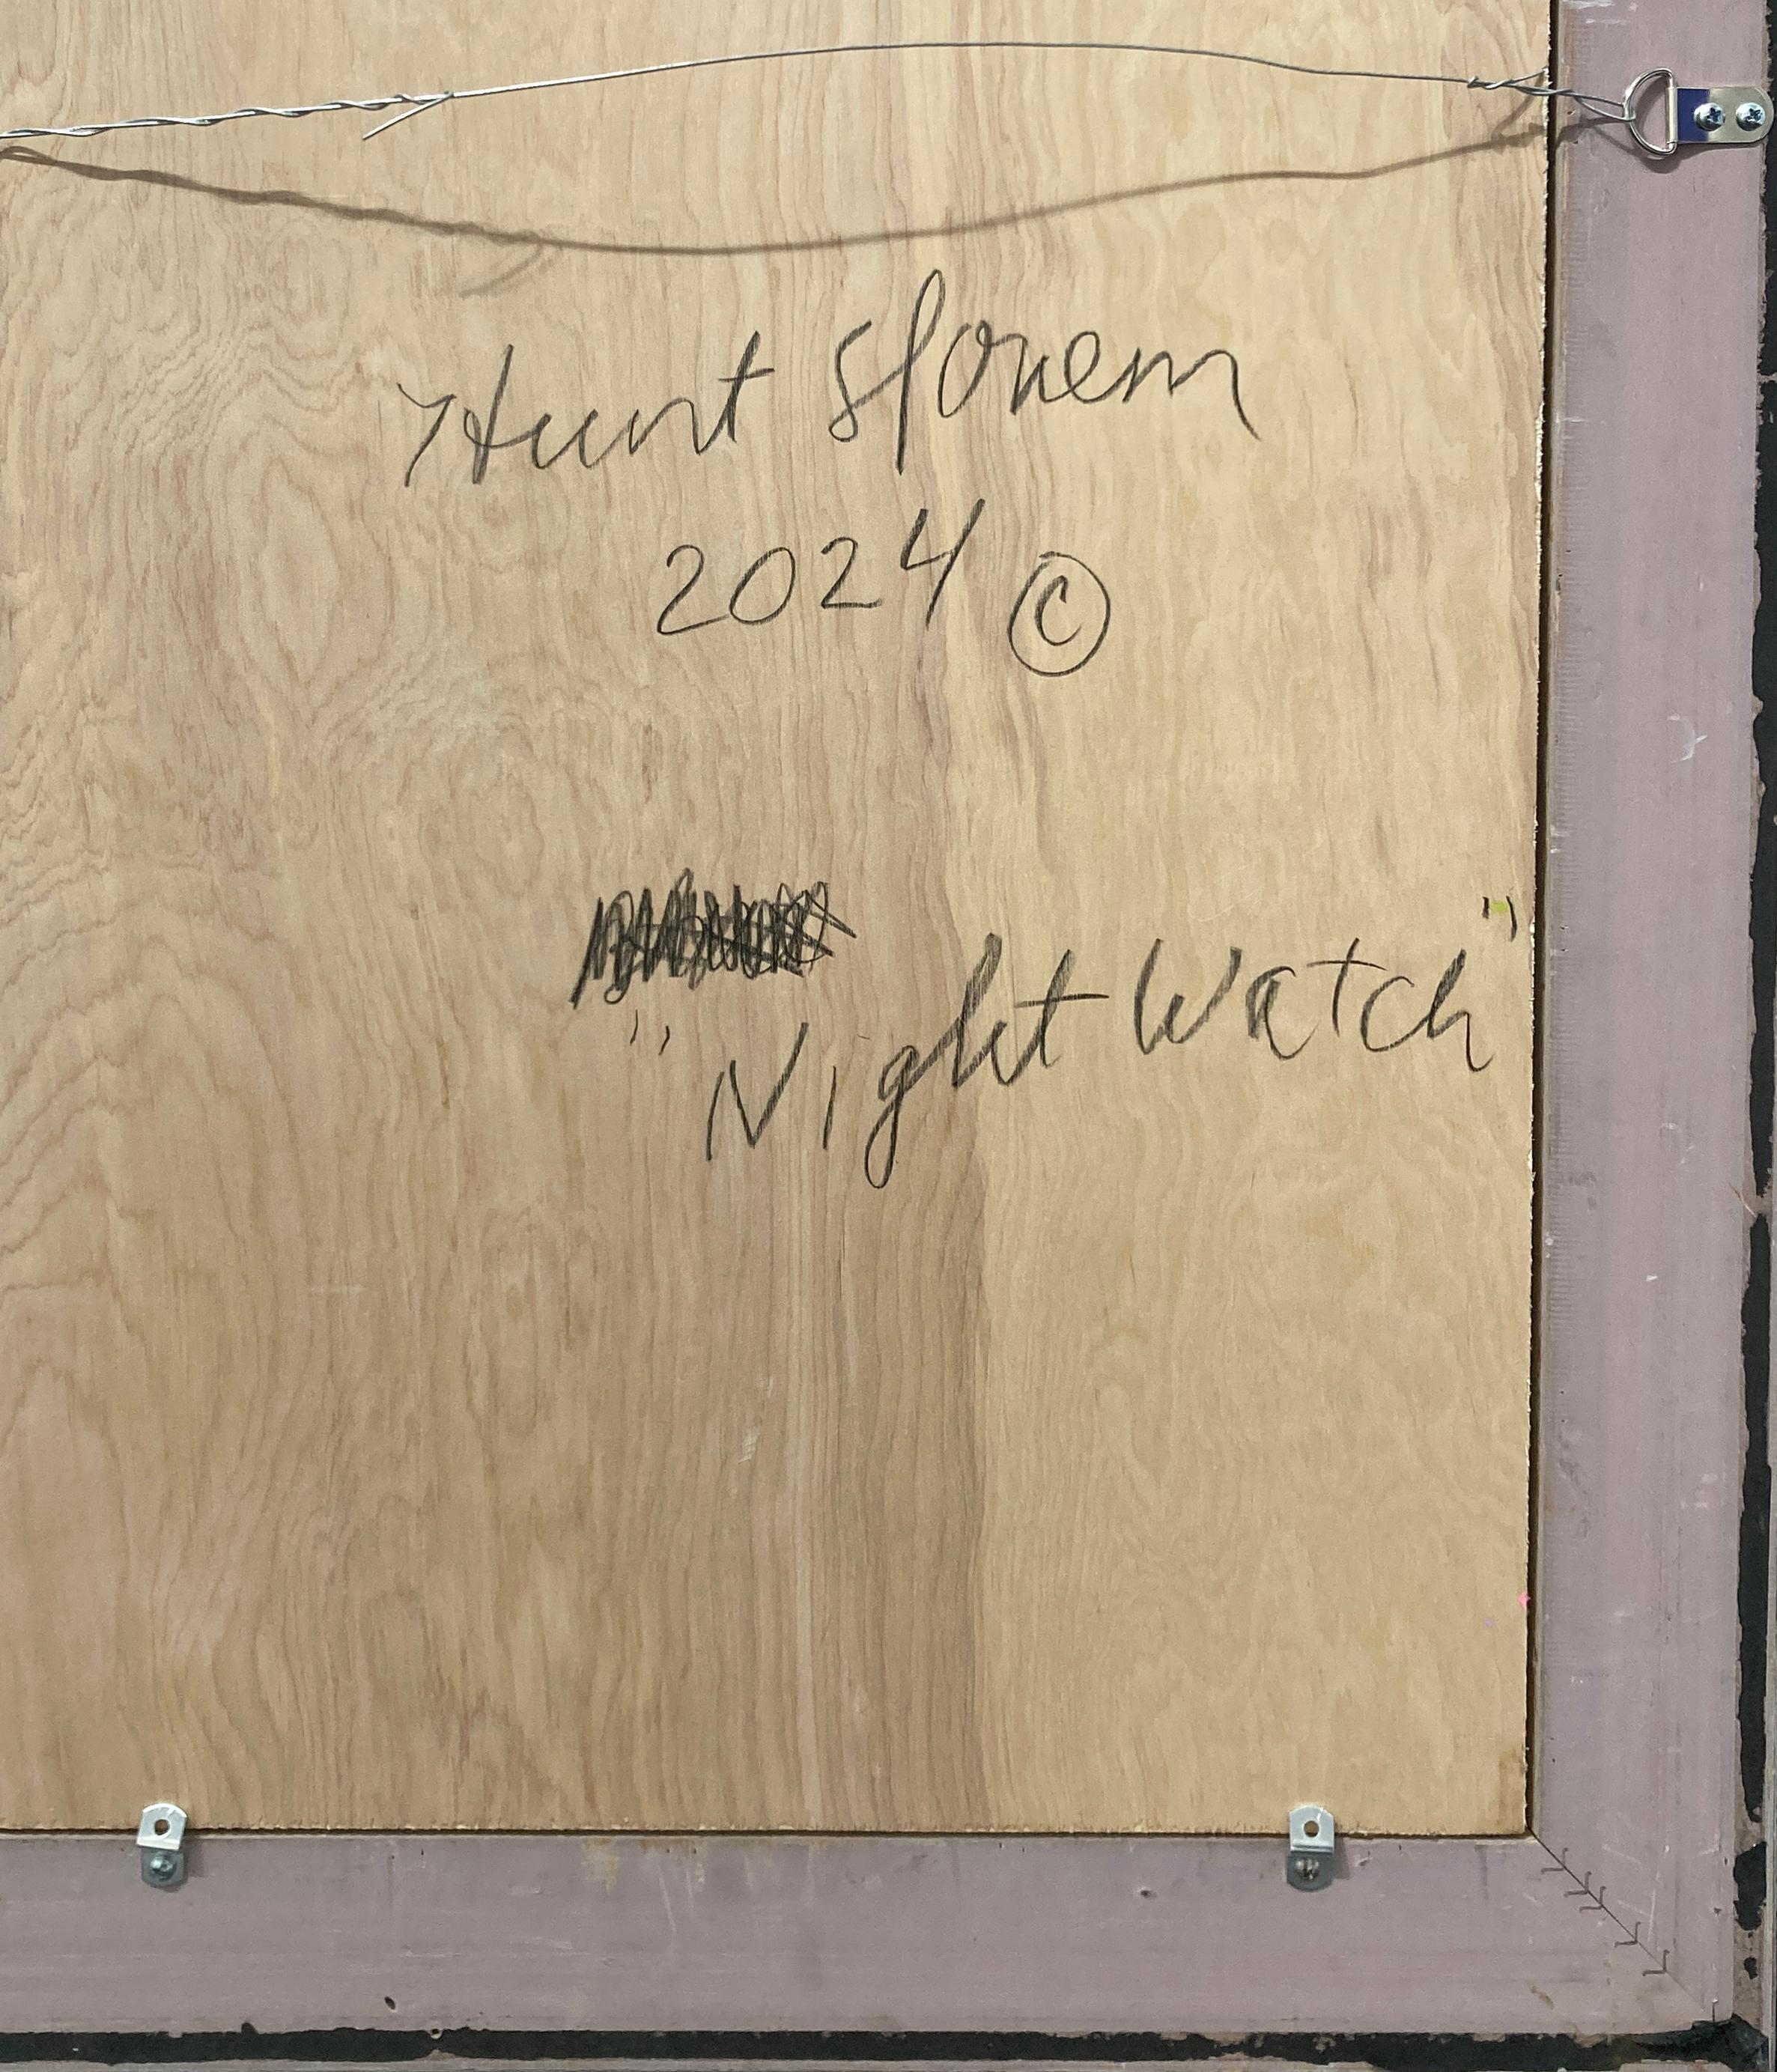 Hunt Slonem
2024 ©
"Night Watch"